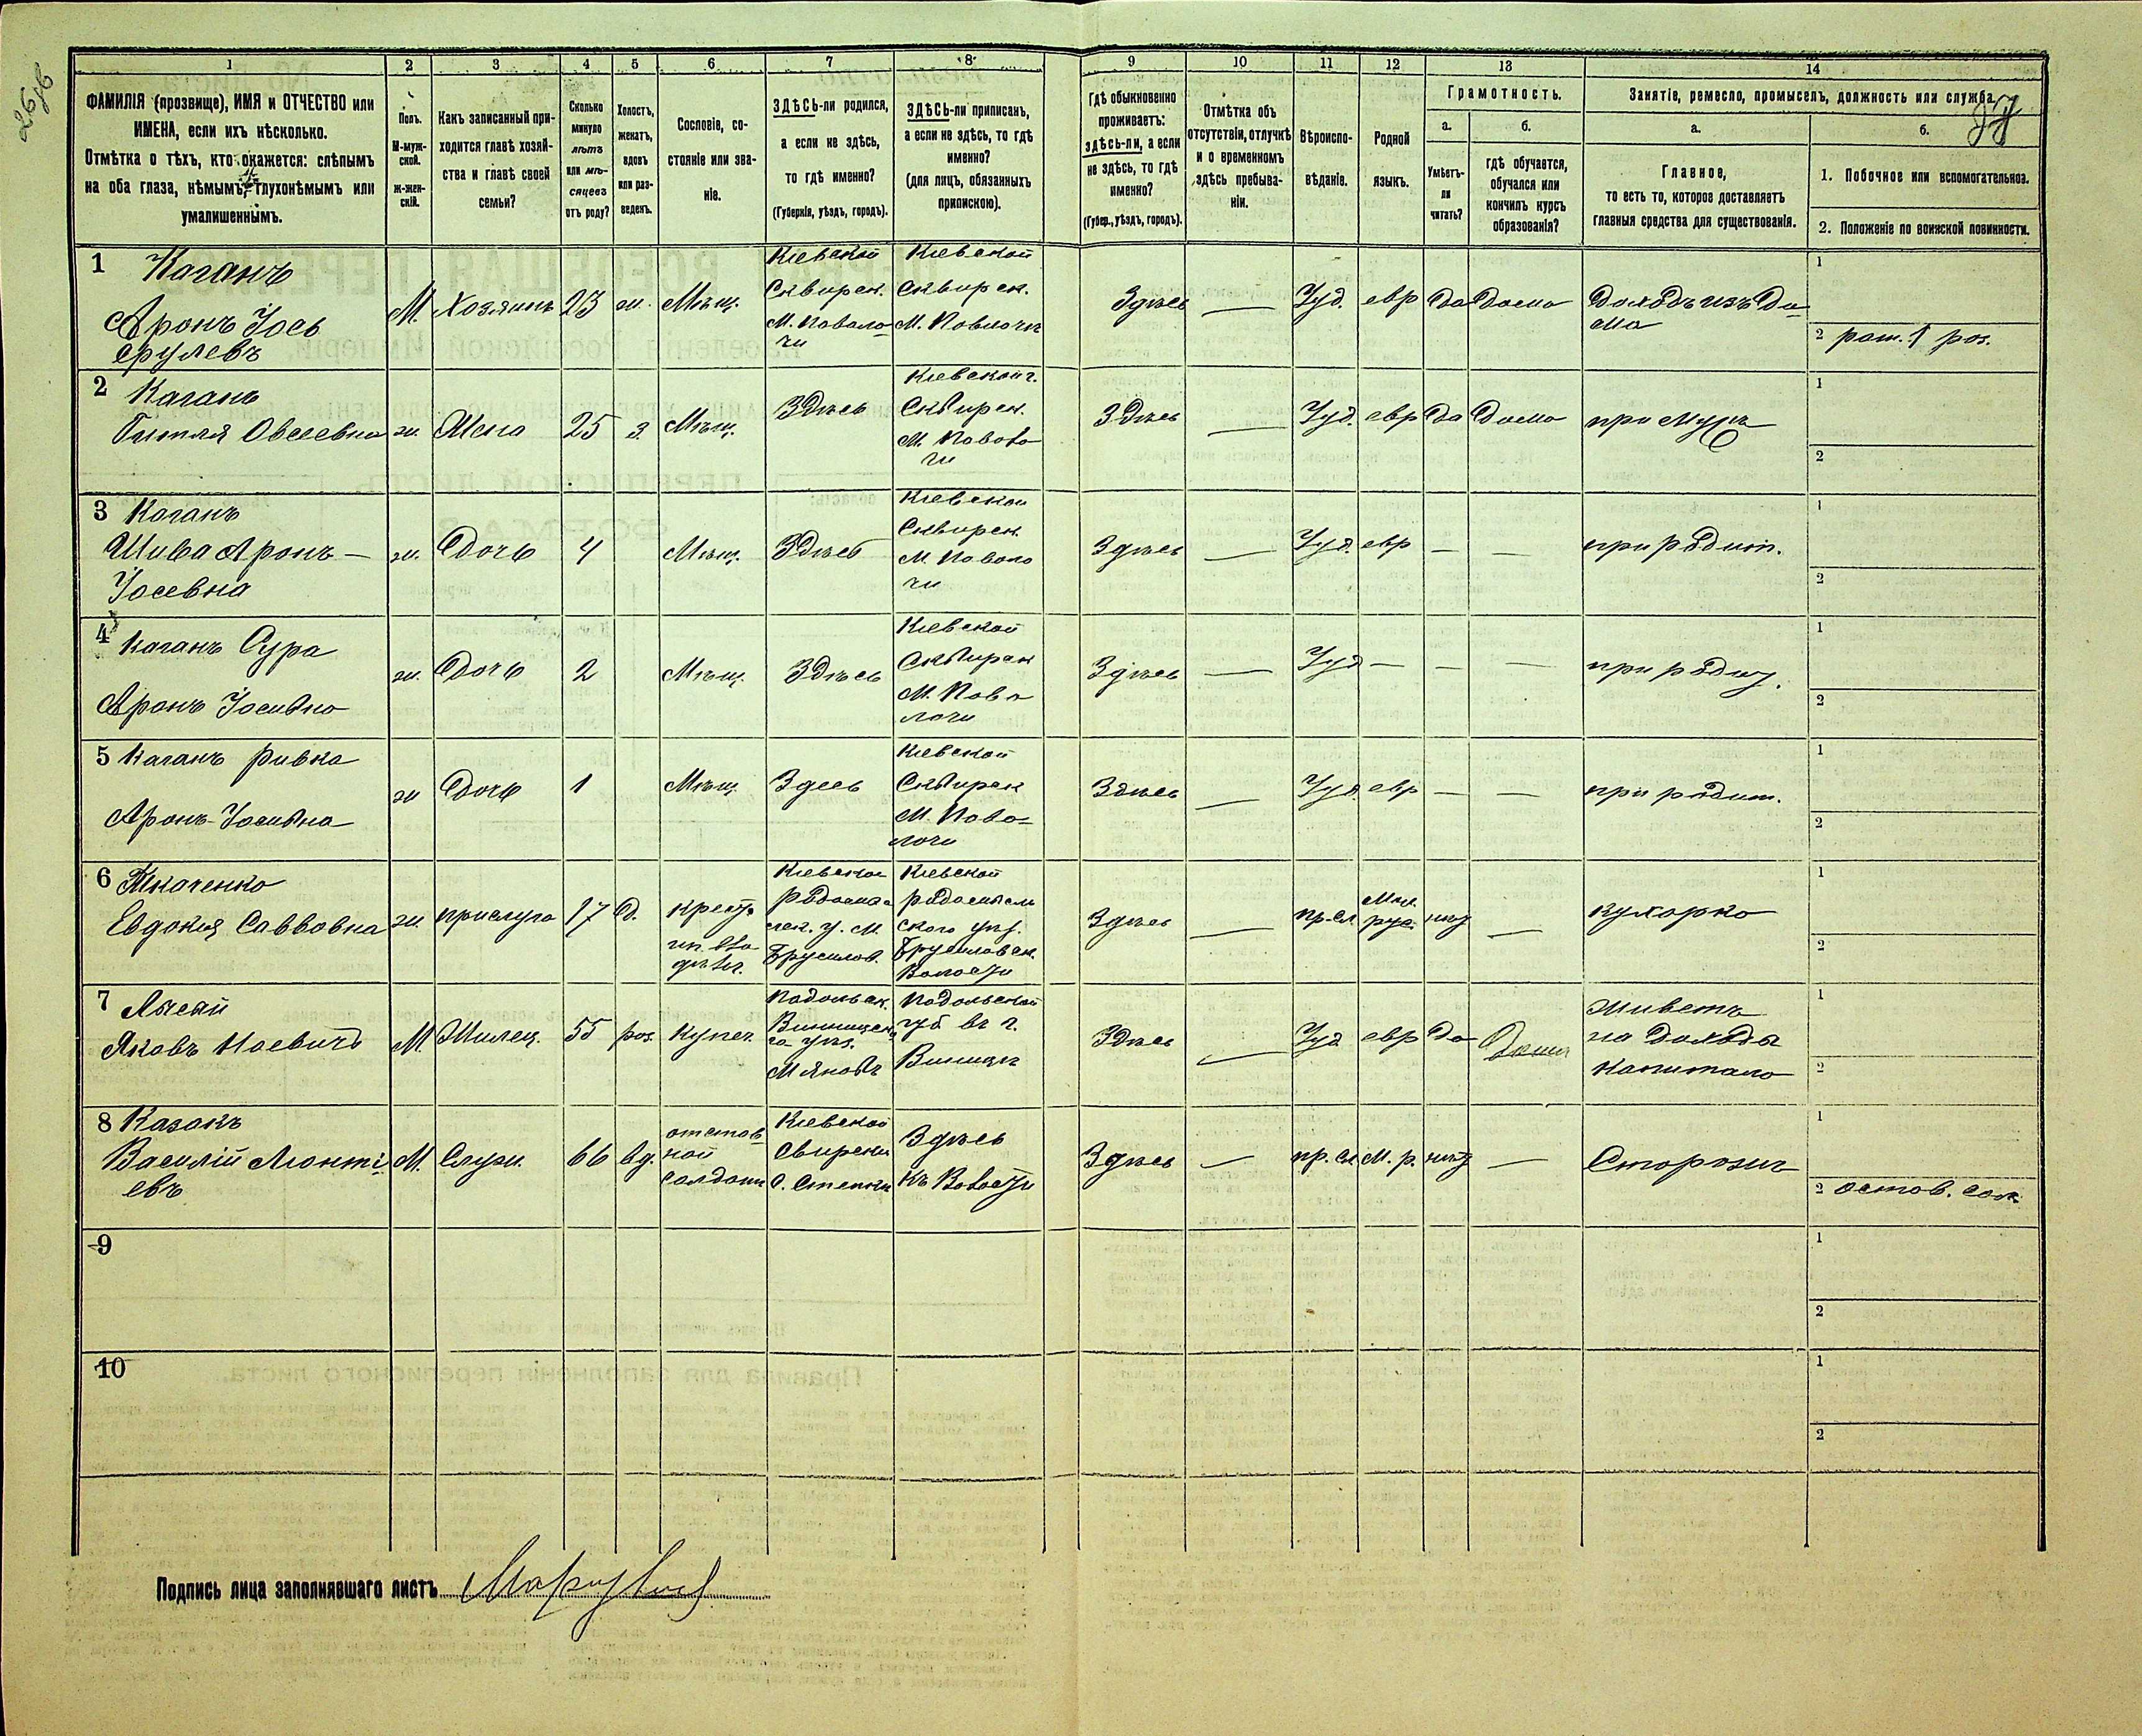 26об
1 2 3 4 5 6 7 8 9 10 11 12 13 14
ФАМИЛІЯ (прозвище), ИМЯ и ОТЧЕСТВО или
ИМЕНА, если ихъ нѣсколько.
Отмѣтка о тѣхъ, кто окажется: слѣпымъ
на оба глаза, нѣмымъ, глухонѣмымъ или
умалишеннымъ.
Полъ.
М-муж-
ской.
Ж-жен-
скій.
Какъ записанный при-
ходится главѣ хозяй-
ства и главѣ своей
семьи?
Сколько
минуло
лѣтъ
или мѣ-
сяцевъ
отъ роду?
Холостъ,
женатъ,
вдовъ
или раз-
веденъ.
Сословіе, со-
стояніе или зва-
ніе.
ЗДѢСЬ-ли родился,
а если не здѣсь,
то гдѣ именно?
(Губернія, уѣздъ, городъ).
ЗДѢСЬ-ли приписанъ,
а если не здѣсь, то гдѣ
именно?
(для лицъ, обязанныхъ
припискою).
Гдѣ обыкновенно
проживаетъ:
здѣсь-ли, а если
не здѣсь, то гдѣ
именно?
(Губер., уѣздъ, городъ).
Отмѣтка объ
отсутствіи, отлучкѣ
и о временномъ
здѣсь пребыва-
ніи.
Вѣроиспо-
вѣданіе.
Родной
языкъ.
Грамотность.
а.
Умѣетъ-
ли
читать?
б.
гдѣ обучается,
обучался или
кончилъ курсъ
образованія?
Занятіе, ремесло, промыселъ, должность или служба.
а.
Главное,
то есть то, которое доставляетъ
главныя средства для существованія.
б.
1. Побочное или вспомогательное.
2. Положеніе по воинской повинности.
1 Каганъ
Аронъ Іось
Срулевъ
М. Хозяинъ 23 ж. Мѣщ.
Кіевской
Сквирск.
М. Паволо-
чи
Кіевской
Сквирск.
М. Поволочи
Здѣсь — Іуд. евр да Дома
Доходъ изъ До-
ма
1
2 рат. 1 раз.
2 Каганъ
Гитля Овсеевна ж. Жена 25 з. Мѣщ. Здѣсь
Кіевской г.
Сквирск.
М. Поволо
чи
Здѣсь — Іуд. евр да Дома при Мужѣ
1
2
3 Каганъ
Шива Аронъ-
Іосевна
ж. Дочь 4 Мѣщ. Здѣсь
Кіевской
Сквирск
М. Поволо
чи
Здѣсь — Іуд. евр — — при родит.
1
2
4 Каганъ Сура
Аронъ Іосивно
ж. Дочь 2 Мѣщ. Здѣсь
Кіевской
Сквирск
М. Пово
лочи
Здѣсь — Іуд — — — при родит.
1
2
5 Каганъ Ривка
Аронъ-Іосивна
ж Дочь 1 Мѣщ. Здесь
Кіевской
Сквирск
М. Пово-
лочи
Здѣсь — Іуд. евр — — при родит.
1
2
6 Ткаченко
Евдокія Савовна ж. прислуга 17 д.
Кіевской
Радомысл
М.
Брусилов.
Кіевской
Радомысль
ского уѣз.
Брусиловск.
Волости
Здѣсь — пр.сл. Мал. рус. нит — кухарка
1
2
7
Яковъ Ноевичъ М. Жилец. 55 раз. Купеч.
Подольск.
Винницка-
го уѣз.
М Яновѣ
Подольской
губ въ г.
Виницѣ
Здѣсь — Іуд. евр да Дома
Живетъ
на доходы
Капитало
1
2
8 Казакъ
Василій Леонті
евъ
М. Служ. 66 вд.
отстав-
ной
солдатъ
Кіевской
Свирски
С. Степки
Здѣсь
Къ Волости
Здѣсь — пр. сл. М. р. нит — Сторожъ
1
2 остав. сол.
9
1
2
10
1
2
Подпись лица заполнявшаго листъ